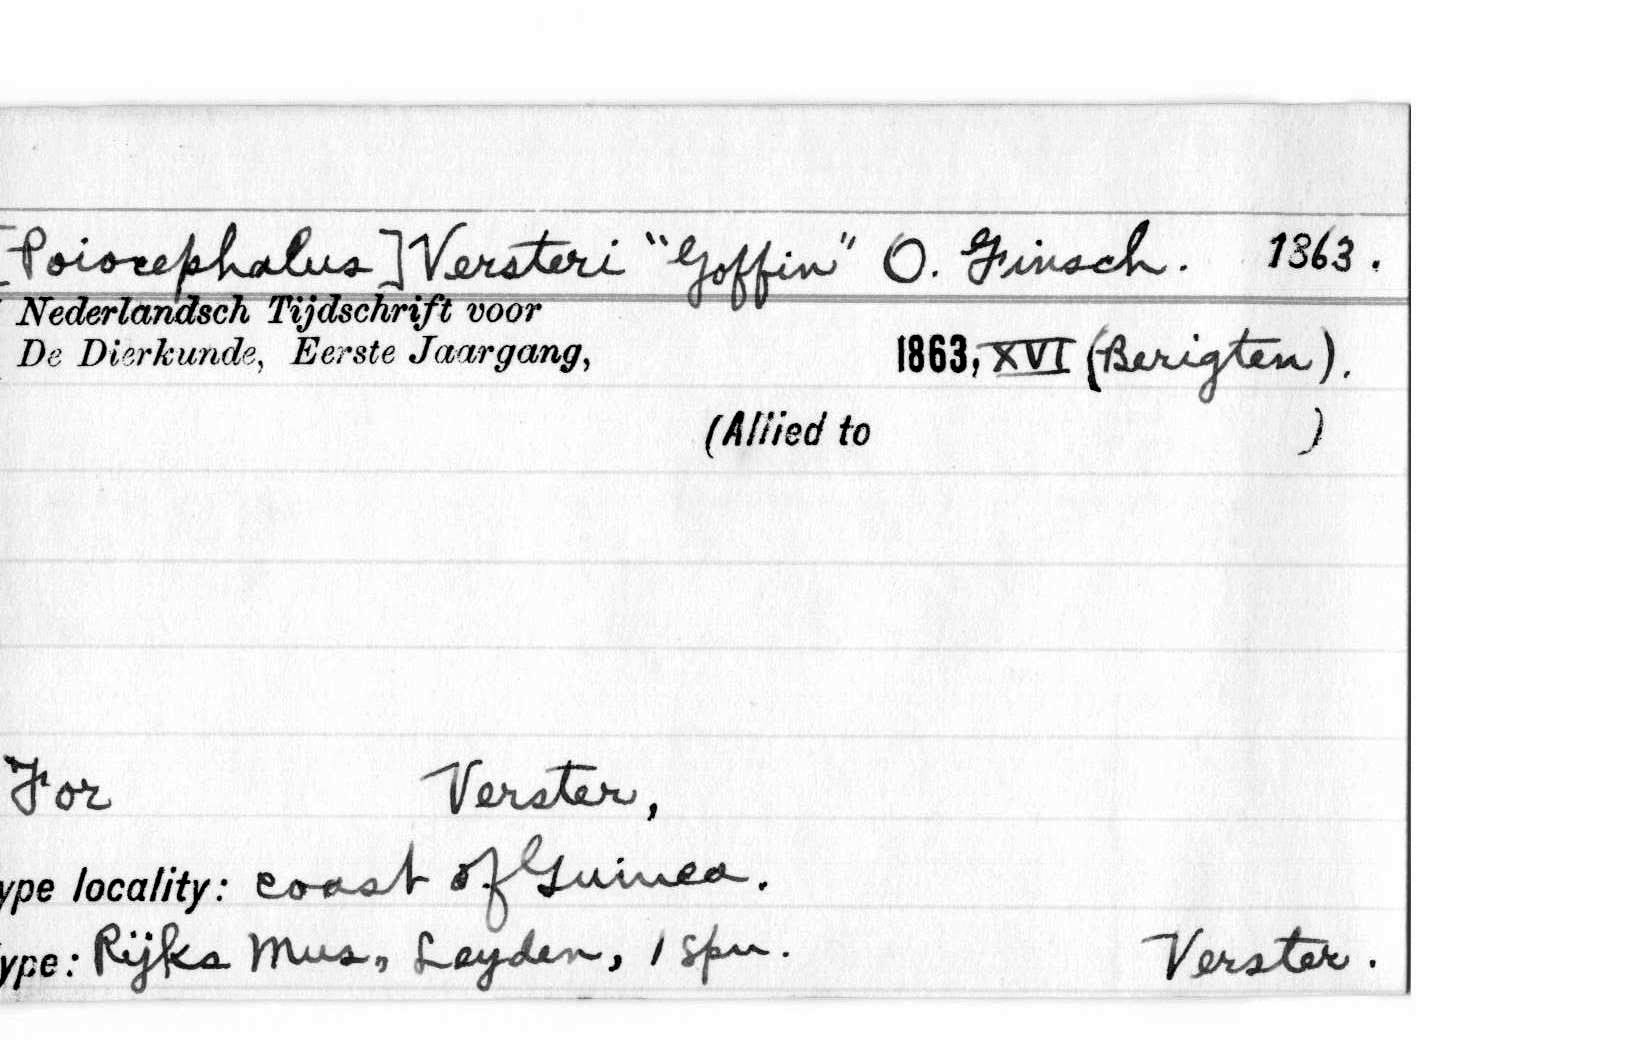 [Poiocephalus] Versteri "Goffin" O. Finsch. 1863.
Nederlandsch Tijdschrift voor
De Dierkunde, Eerste Jaargang, 1863, XVI (Berigten).
(Allied to )
For Verster,
ype locality: coast of Guinea.
ype: Rijks Mus., Leyden, 1 spn. Verster.